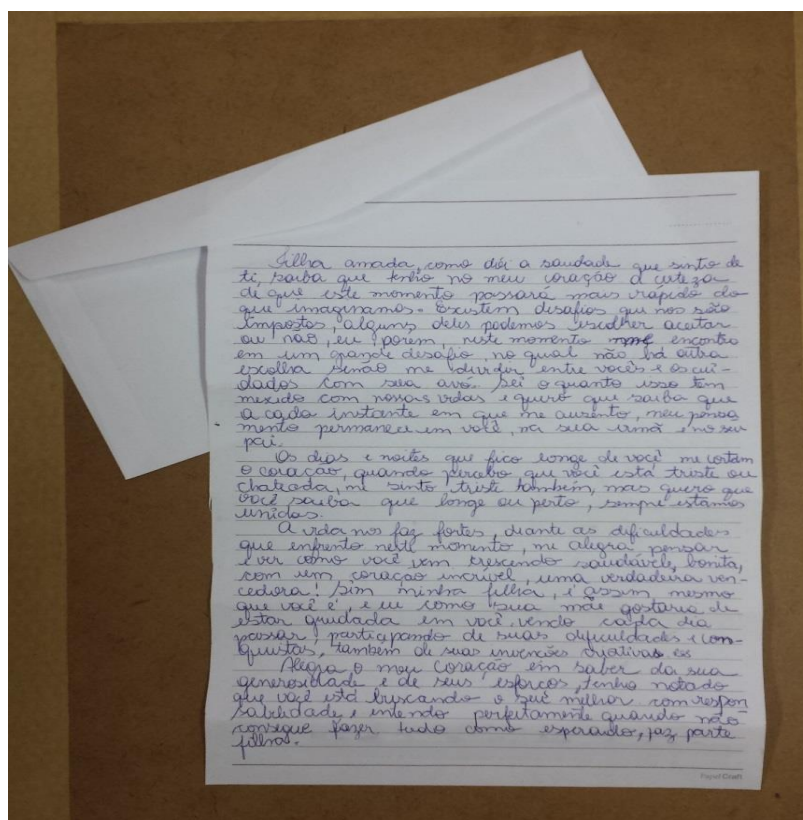 Filha amada, como dói a saudade que sinto de
ti, saiba que tenho no meu coração a certeza
de que este momento passará mais rápido do
que imaginamos. Existem desafios que nos são
impostos, alguns deles podemos escolher aceitar
ou não, eu porem, neste momento me encontro
em um grande desafio, no qual não há outra
escolha senão me dividir entre vocês e os cui-
dados com sua avó. Sei o quanto isso tem
mexido com nossas vidas e quero que saiba que
a cada instante em que me ausento, meu pensa
mento permanece em você, na sua irmã e no seu
pai.
Os dias e noites que fico longe de você me cortam
o coração, quando percebo que você está triste ou
chateada, me sinto triste também, mas quero que
você saiba que longe ou perto, sempre estamos
unidas.
A vida nos faz fortes, diante as dificuldades
que enfrento neste momento, me alegra pensar
e ver como você vem crescendo saudável, bonita,
com um coração incrível, uma verdadeira ven-
cedora! Sim minha filha, é assim mesmo
que você é, e eu como sua mãe gostaria de
estar grudada em você, vendo cada dia
passar, participando de suas dificuldades e con-
quistas, também de suas invenções criativas.
Alegra o meu coração em saber da sua
generosidade e de seus esforços, tenho notado
que você está buscando o seu melhor com respon
sabilidade, e entendo perfeitamente quando não
consegue fazer tudo como esperado, faz parte
filha.
PaperCraft